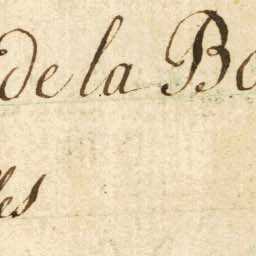 de la Bo
les